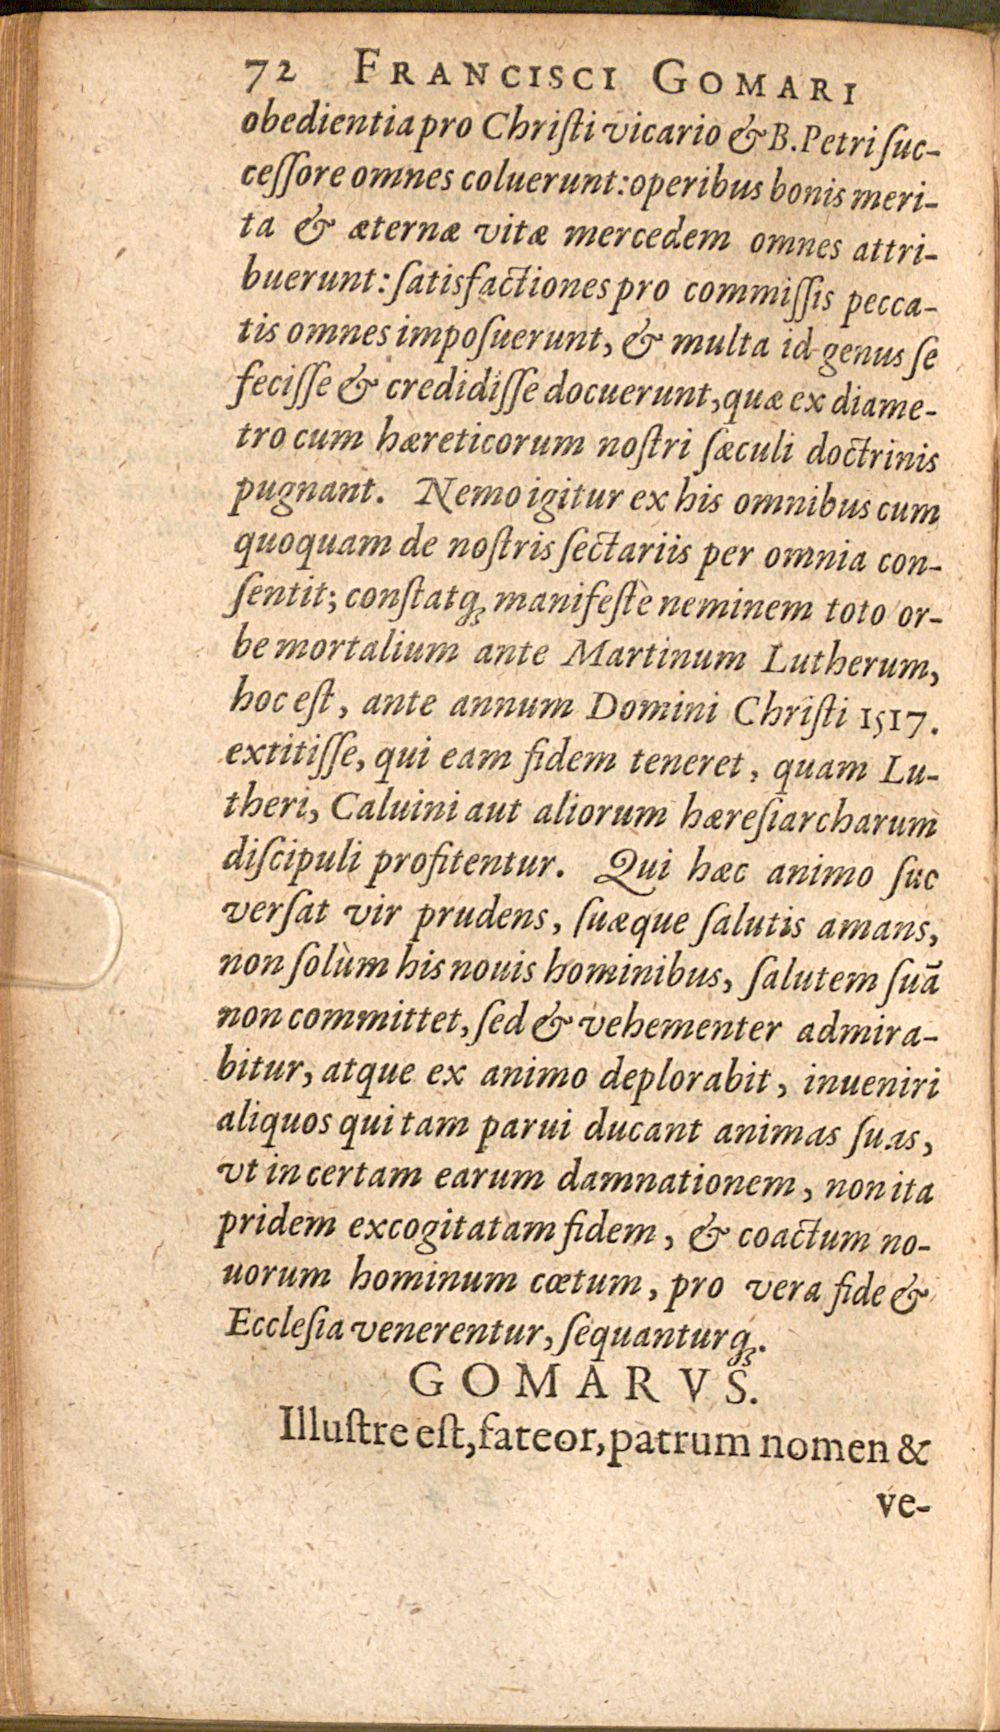 72 FRANCISCI GOMARI
obedientia pro Chriſti vicario & B. Petri ſuc-
ceſſore omnes coluerunt: operibus bonis meri-
ta & æternæ vitæ mercedem omnes attri-
buerunt: ſatisfactiones pro commiſſis pecca-
tis omnes impoſuerunt, & multa id genus ſe
feciſſe & credidiſſe docuerunt, quæ ex diame-
tro cum hæreticorum noſtri ſæculi doctrinis
pugnant. Nemo igitur ex his omnibus cum
quoquam de noſtris ſectariis per omnia con-
ſentit; conſtatq; manifeſtè neminem toto or-
be mortalium ante Martinum Lutherum,
hoc eſt, ante annum Domini Chriſti 1517.
extitiſſe, qui eam fidem teneret, quam Lu-
theri, Caluini aut aliorum hæreſiarcharum
diſcipuli profitentur. Qui hæc animo ſuc
verſat vir prudens, ſuæque ſalutis amans,
non ſolùm his nouis hominibus, ſalutem ſuã
non committet, ſed & vehementer admira-
bitur, atque ex animo deplorabit, inueniri
aliquos qui tam parui ducant animas ſuas,
vt in certam earum damnationem, non ita
pridem excogitatam fidem, & coactum no-
uorum hominum cœtum, pro vera fide &
Eccleſia venerentur, ſequanturq;.
GOMARVS.
Illuſtre eſt, fateor, patrum nomen &
ve-